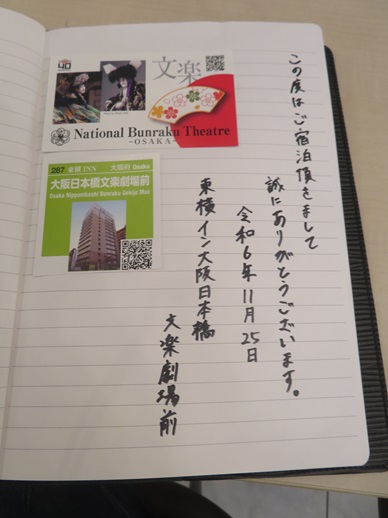 40
文楽
National Bunraku Theatre
-OSAKA-
267 東横INN 大阪府 Osaka
大阪日本橋文楽劇場前
Osaka Nippombashi Bunraku Gekijo Mae
この度はご宿泊頂きまして
誠にありがとうございます。
令和6年11月25日
東横イン大阪日本橋
文楽劇場前